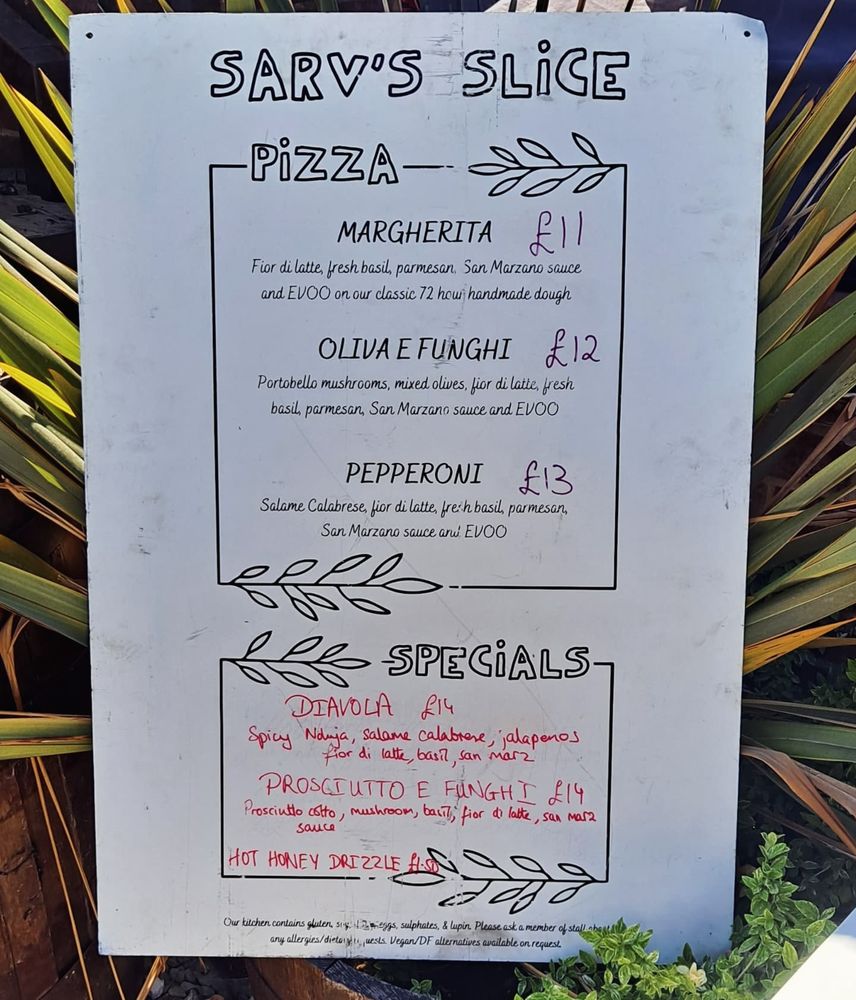 SARV'S SLiCE
PiZZA
MARGHERITA £11
Fior di latte, fresh basil, parmesan, San Marzano sauce
and EVOO on our classic 72 hour handmade dough
OLIVA E FUNGHI £12
Portobello mushrooms, mixed olives, fior di latte, fresh
basil, parmesan, San Marzano sauce and EVOO
PEPPERONI £13
Salame Calabrese, fior di latte, fresh basil, parmesan,
San Marzano sauce and EVOO
SPECiALS
DIAVOLA £14
Spicy Nduja, salame calabrese, jalapenos
fior di latte, basil, san marz
PROSCIUTTO E FUNGHI £14
Prosciutto cotto, mushroom, basil, fior di latte, san marz
sauce
HOT HONEY DRIZZLE £1.50
Our kitchen contains gluten, eggs, sulphates, & lupin. Please ask a member of staff about
any allergies/dietary requests. Vegan/DF alternatives available on request.